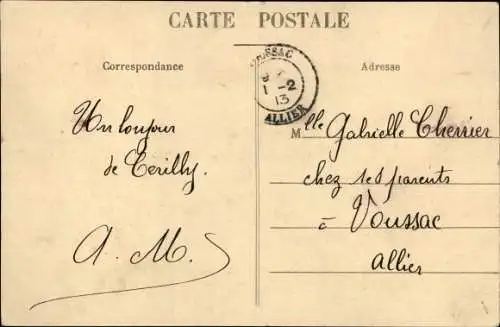 CARTE POSTALE
Correspondance
Adresse
VOUSSAC
1 -2
13
ALLIER
Un bonjour
de Terilly.
A. M.
Mlle Gabrielle Cherrier
chez ses parents
à Voussac
Allier